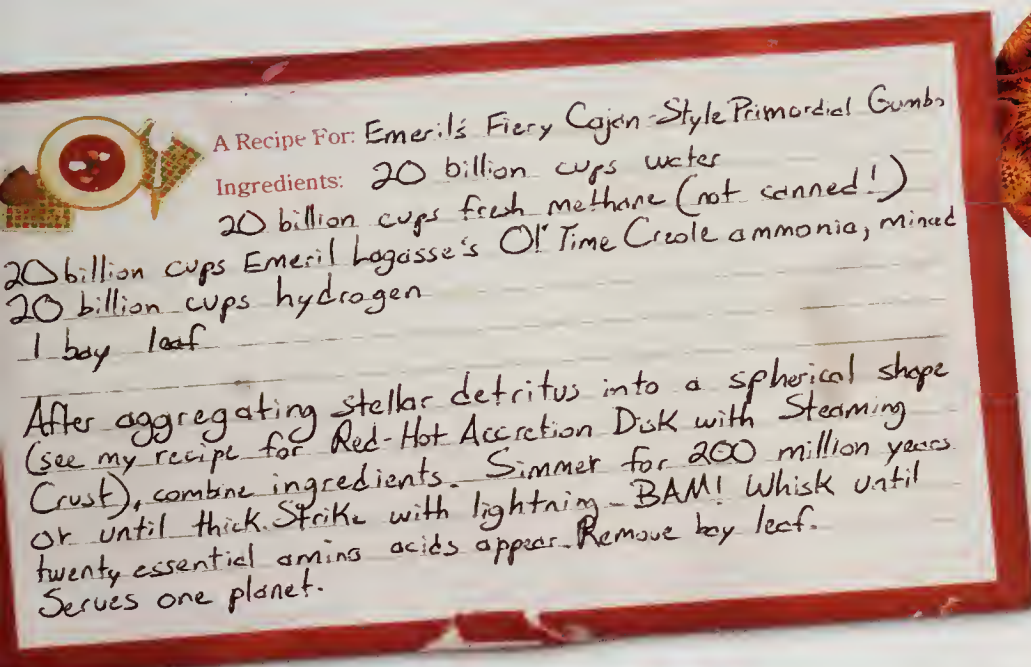 A Recipe For: Emeril's Fiery Cajun-Style Primordial Gumbo
Ingredients: 20 billion cups water
20 billion cups fresh methane (not canned!)
20 billion cups Emeril Lagasse's Ol' Time Creole ammonia, minced
20 billion cups hydrogen
1 bay leaf
After aggregating stellar detritus into a spherical shape
(see my recipe for Red-Hot Accretion Disk with Steaming
Crust), combine ingredients. Simmer for 200 million years
or until thick. Strike with lightning - BAM! Whisk until
twenty essential amino acids appear. Remove bay leaf.
Serves one planet.